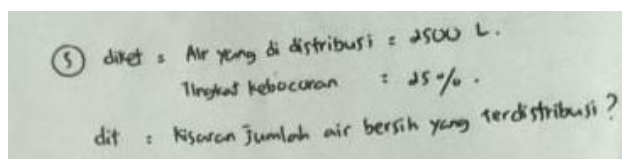 5 diket : Air yang di distribusi = 2500 L.
Tingkat kebocoran : 25%.
dit : Kisaran jumlah air bersih yang terdistribusi?